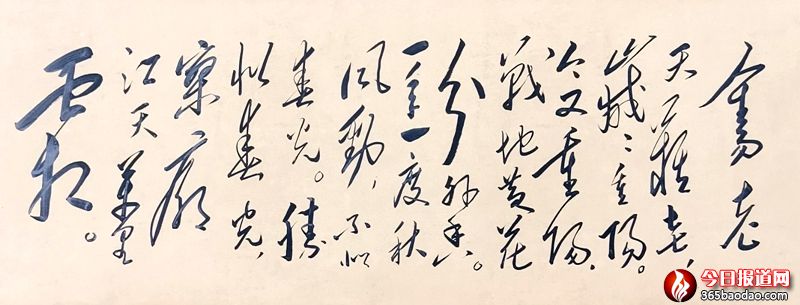 人生易老
天難老,
歲〻重陽。
今又重陽,
戰地黃花
分外香。
一年一度秋
風勁,不似
春光。勝
似春光,
寥廓
江天萬里
霜。
今日报道网
365baodao.com